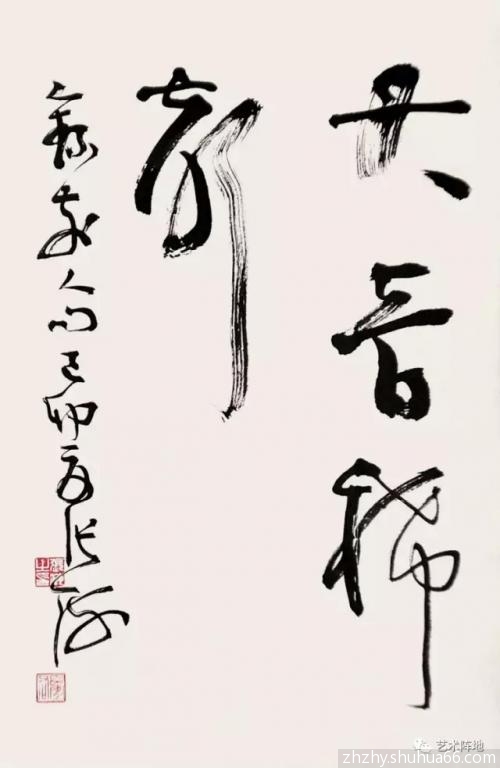 大音稀
声
人句己卯夏张海
艺术阵地
zhzhy.shuhua66.com